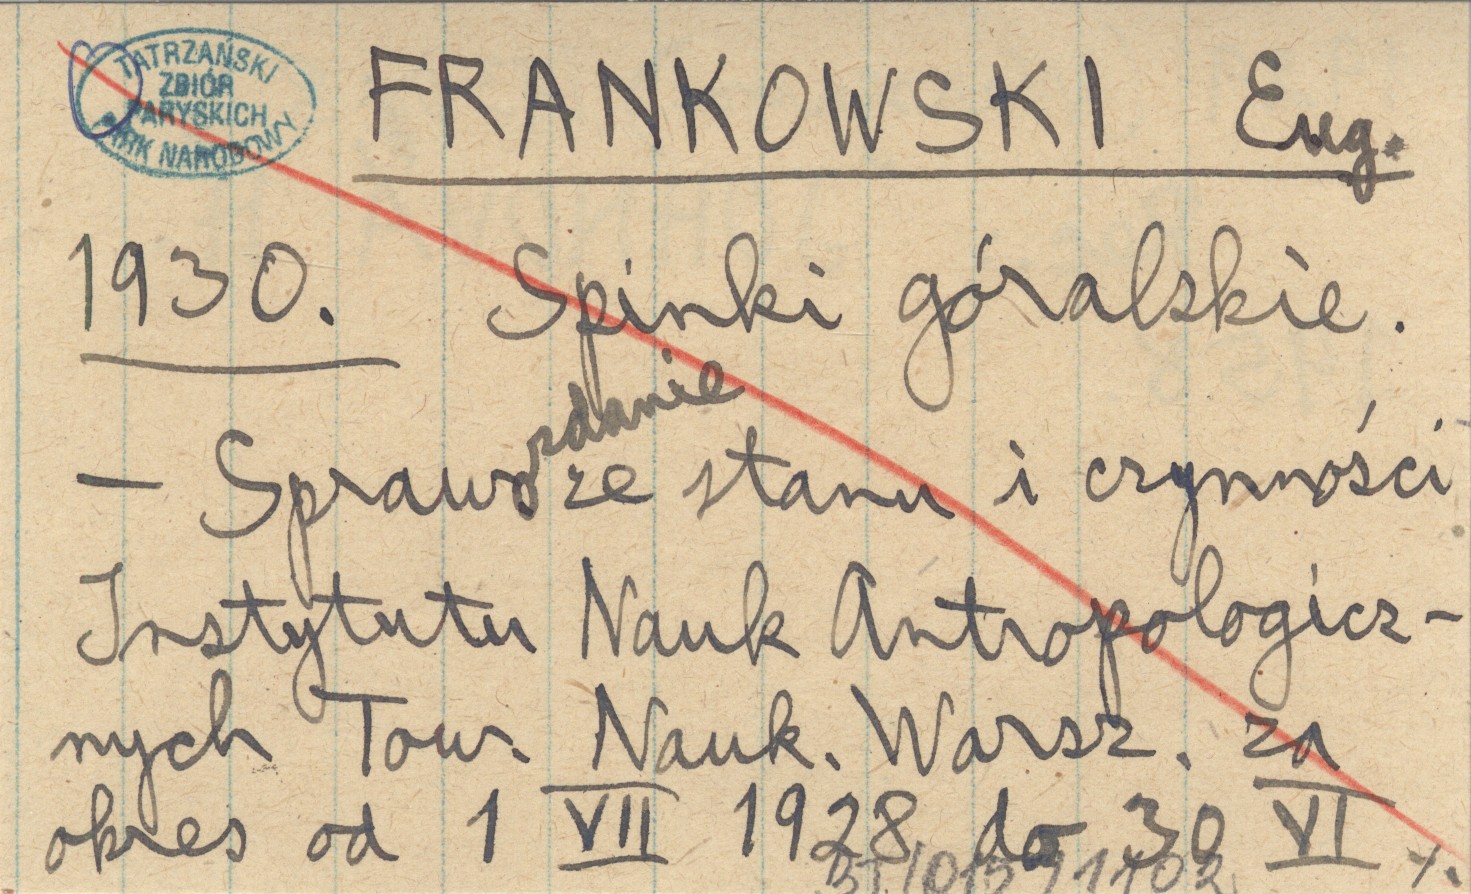 TATRZAŃSKI
ZBIÓR
PARYSKICH
PARK NARODOWY
FRANKOWSKI Eug.
1930. Spinki góralskie.
— Sprawozdanie ze stanu i czynności
Instytutu Nauk Antropologicz-
nych Tow. Nauk. Warsz. za
okres od 1 VII 1928 do 30 VI ⁒